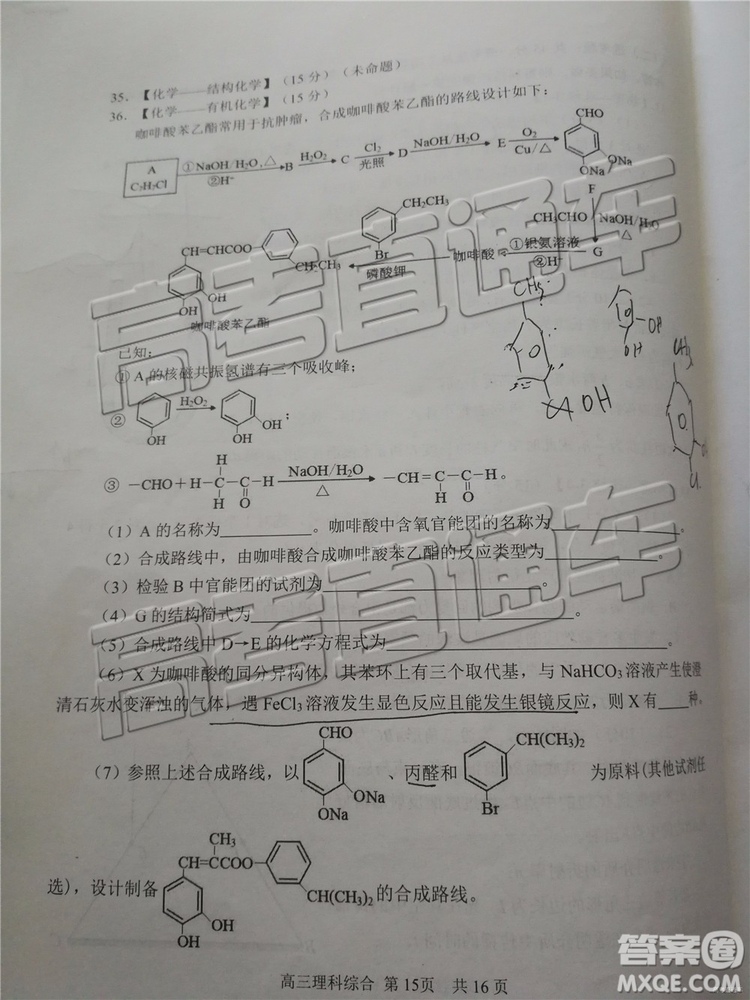 35. 【化学——结构化学】(15分)(未命题)
36. 【化学——有机化学】(15分)
咖啡酸苯乙酯常用于抗肿瘤,合成咖啡酸苯乙酯的路线设计如下:
A C₇H₇Cl ①NaOH/H₂O,△ ②H⁺ B H₂O₂ C Cl₂ 光照 D NaOH/H₂O E O₂ Cu/△ CHO ONa ONa
F
CH₃CHO NaOH/H₂O △
G
①银氨溶液 ②H⁺
咖啡酸
CH₂CH₃ Br 磷酸钾
CH=CHCOO CH₂CH₃ OH OH
咖啡酸苯乙酯
CH₃ OH
OH OH
CH₃ Cl
已知:
①A的核磁共振氢谱有三个吸收峰;
② OH H₂O₂ OH OH ;
③ —CHO+H—C—C—H NaOH/H₂O △ —CH=C—C—H。
H H O H O
(1)A的名称为________。咖啡酸中含氧官能团的名称为________
(2)合成路线中,由咖啡酸合成咖啡酸苯乙酯的反应类型为________。
(3)检验B中官能团的试剂为________。
(4)G的结构简式为________。
(5)合成路线中D→E的化学方程式为________。
(6)X为咖啡酸的同分异构体,其苯环上有三个取代基,与NaHCO₃溶液产生使澄
清石灰水变浑浊的气体,遇FeCl₃溶液发生显色反应且能发生银镜反应,则X有____种。
(7)参照上述合成路线,以 CHO ONa ONa 、丙醛和 CH(CH₃)₂ Br 为原料(其他试剂任
选),设计制备 CH₃ CH=CCOO CH(CH₃)₂ OH OH 的合成路线。
高三理科综合 第15页 共16页
高考直通车
高考直通车
答案圈
MXQE.COM